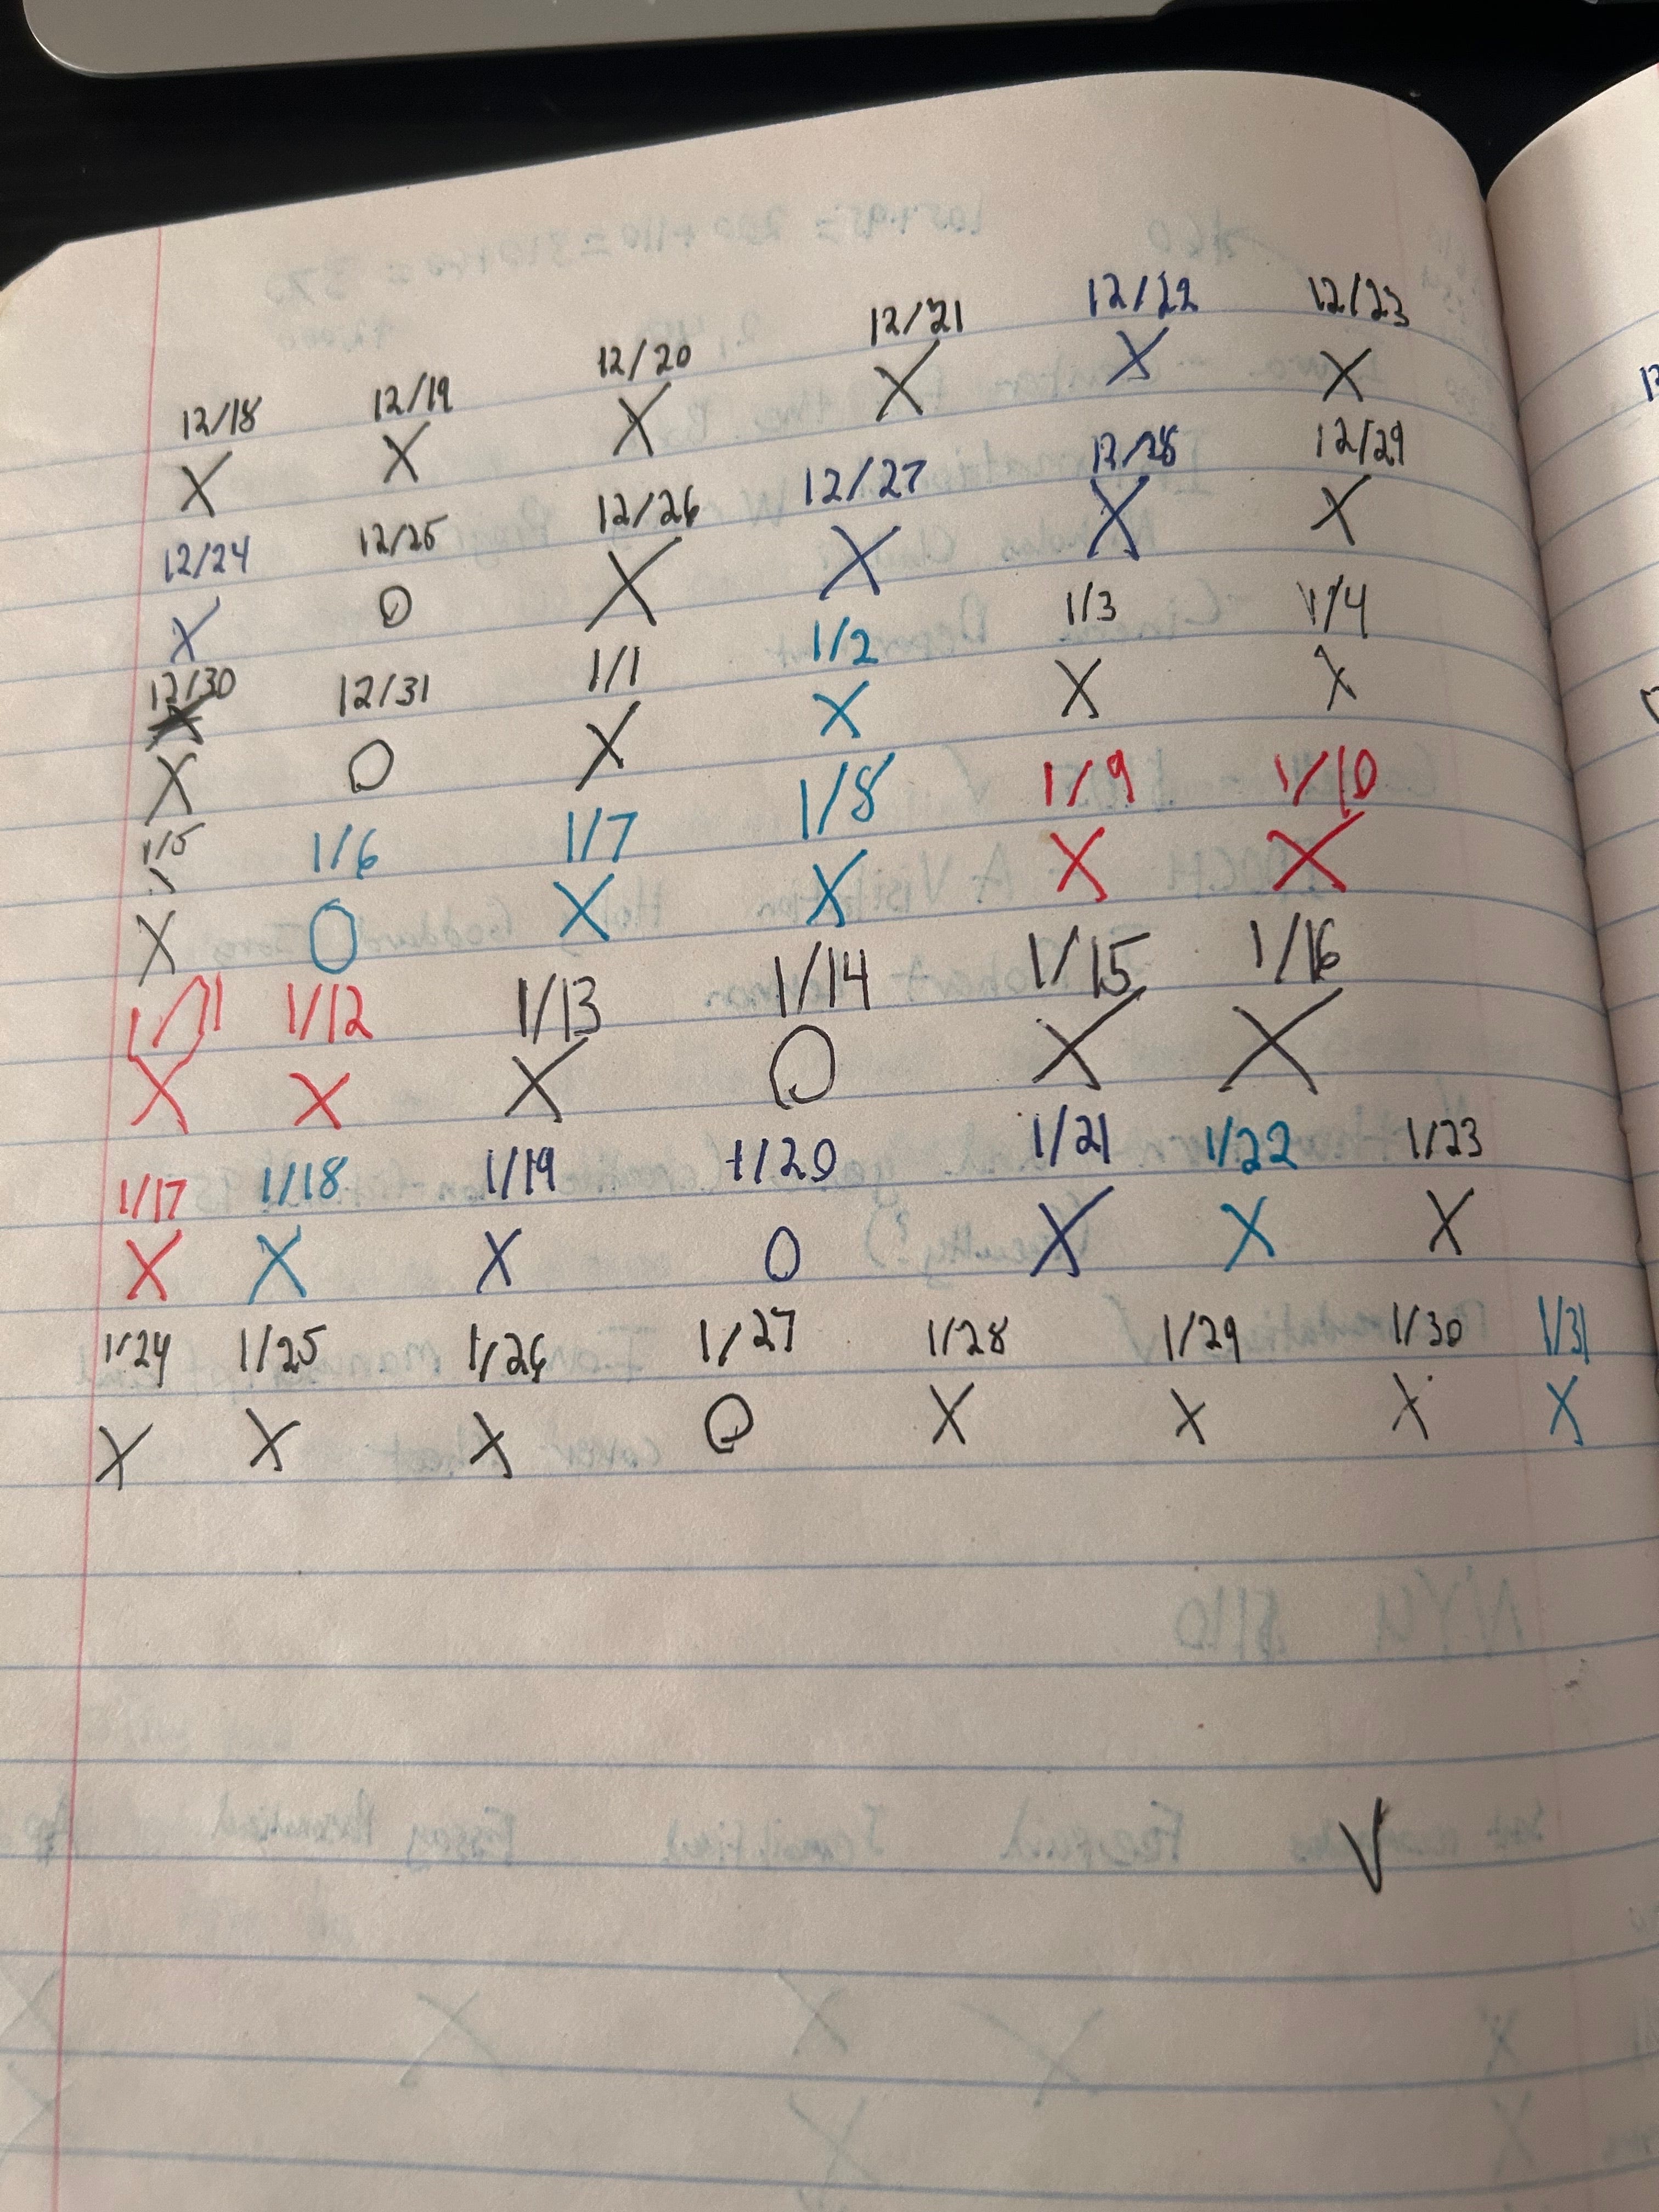 12/18 12/19 12/20 12/21 12/22 12/23
X X X X X X
12/24 12/25 12/26 12/27 12/28 12/29
X O X X X X
12/30 12/31 1/1 1/2 1/3 1/4
X O X X X X
1/5 1/6 1/7 1/8 1/9 1/10
X O X X X X
1/11 1/12 1/13 1/14 1/15 1/16
X X X O X X
1/17 1/18 1/19 1/20 1/21 1/22 1/23
X X X O X X X
1/24 1/25 1/26 1/27 1/28 1/29 1/30 1/31
X X X O X X X X
V